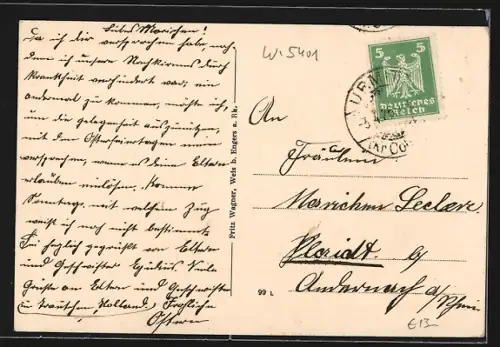 Liebes Mariechen!
Da ich dir versprochen habe, nach-
dem ich unsere Nachkirmes durch
Krankheit verhindert war, ein
andermal zu kommen, möchte ich,
um die gelegenheit auszunützen,
mit den Osterfeiertagen mein
versprechen, wenn es deine Eltern
erlauben einlösen. Komme
Sonntags, mit welchem Zug
weiß ich noch nicht bestimmt.
Sei herzlich gegrüßt von Eltern
und Geschwister Viele
Grüße an Eltern und Geschwister
Fröhliche
Ostern
Fritz Wagner, Weis b. Engers a. Rh.
99 L
W-5401
5 5
Deutsches
Reich
An
Fräulein
Mariechen Leclere
Plaidt b/
Andernach a/Rhein
E13-